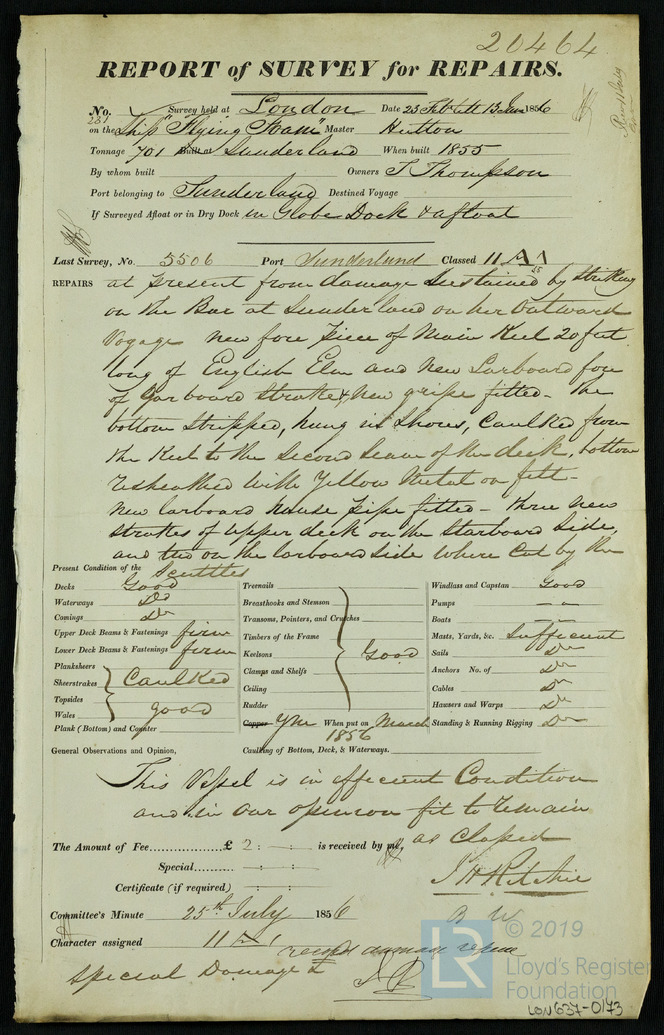 20464
REPORT of SURVEY for REPAIRS.
No. Survey held at London Date 23 Feb till 13 Jun 1856
on the Ship "Flying Foam" Master Hutton
Tonnage 701 Built at Sunderland When built 1855
By whom built Owners T Thompson
Port belonging to Sunderland Destined Voyage
If Surveyed Afloat or in Dry Dock in Globe Dock & afloat
Last Survey, No. 5506 Port Sunderland Classed 11 A 1
REPAIRS at present from damage sustained by striking
on the Bar at Sunderland on her Outward
Voyage new fore piece of Main Keel 20 feet
long of English Elm and new Larboard fore
of Garboard Strake & new gripe fitted - the
bottom Stripped, hung in Shores, Caulked from
the Keel to the Second Seam of the deck, bottom
resheathed with Yellow Metal on felt -
New larboard hawse pipe fitted - three new
strakes of upper deck on the Starboard Side,
and two on the larboard Side where Cut by the
Scuttles
Present Condition of the
Decks Good
Waterways Do
Comings Do
Upper Deck Beams & Fastenings firm
Lower Deck Beams & Fastenings firm
Planksheers
Sheerstrakes Caulked
Topsides
Wales good
Plank (Bottom) and Counter
Treenails
Breasthooks and Stemson
Transoms, Pointers, and Crutches
Timbers of the Frame
Keelsons Good
Clamps and Shelfs
Ceiling
Rudder
Copper YM When put on March
1856
Caulking of Bottom, Deck, & Waterways.
Windlass and Capstan Good
Pumps
Boats
Masts, Yards, &c. Sufficient
Sails Do
Anchors No. of Do
Cables Do
Hawsers and Warps Do
Standing & Running Rigging Do
General Observations and Opinion,
This Vessel is in efficient Condition
and in our opinion fit to remain
as Classed
The Amount of Fee £ 2 : - : - is received by me,
Special
J H Ritchie
Certificate (if required)
Committee's Minute 25th July 1856
Character assigned 11 A 1
Special Damage
© 2019
LR
Lloyd's Register
Foundation
LON637-0173